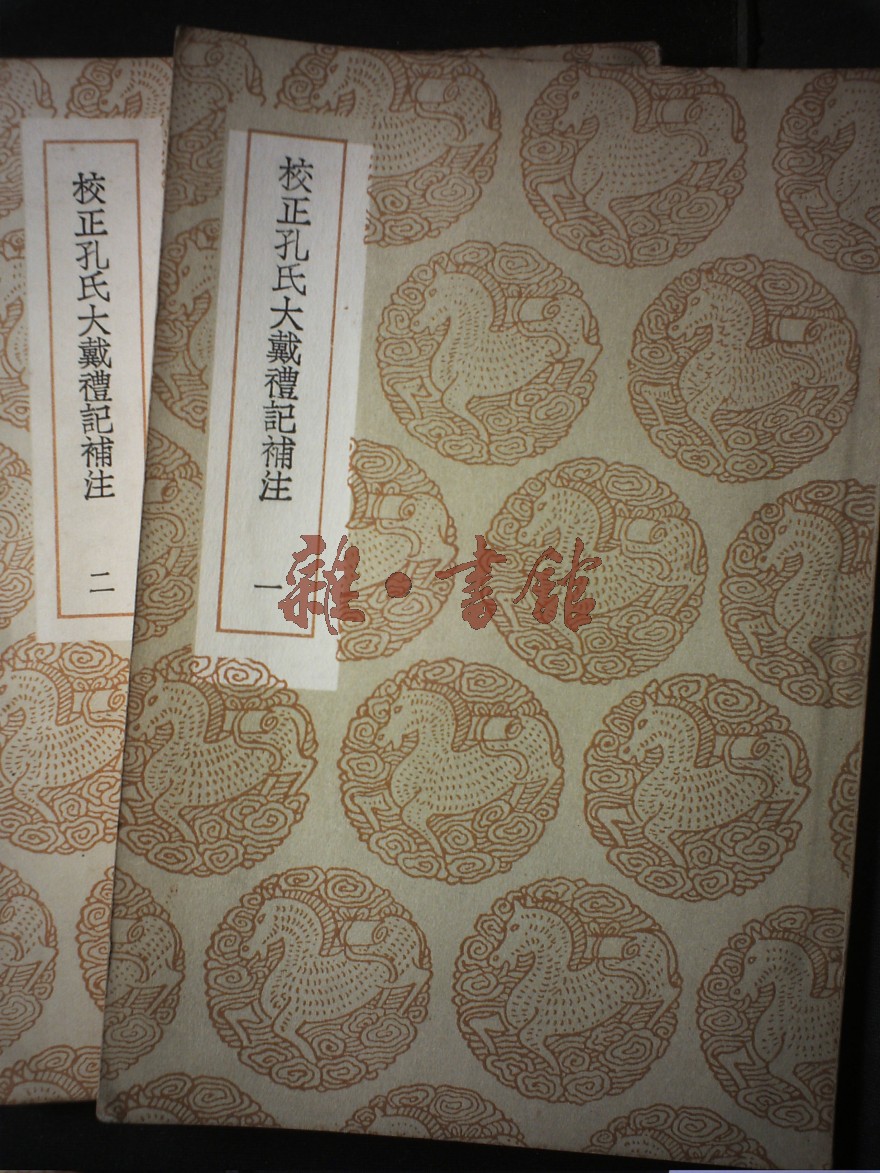 校正孔氏大戴禮記補注 一
校正孔氏大戴禮記補注 二
雜·書館